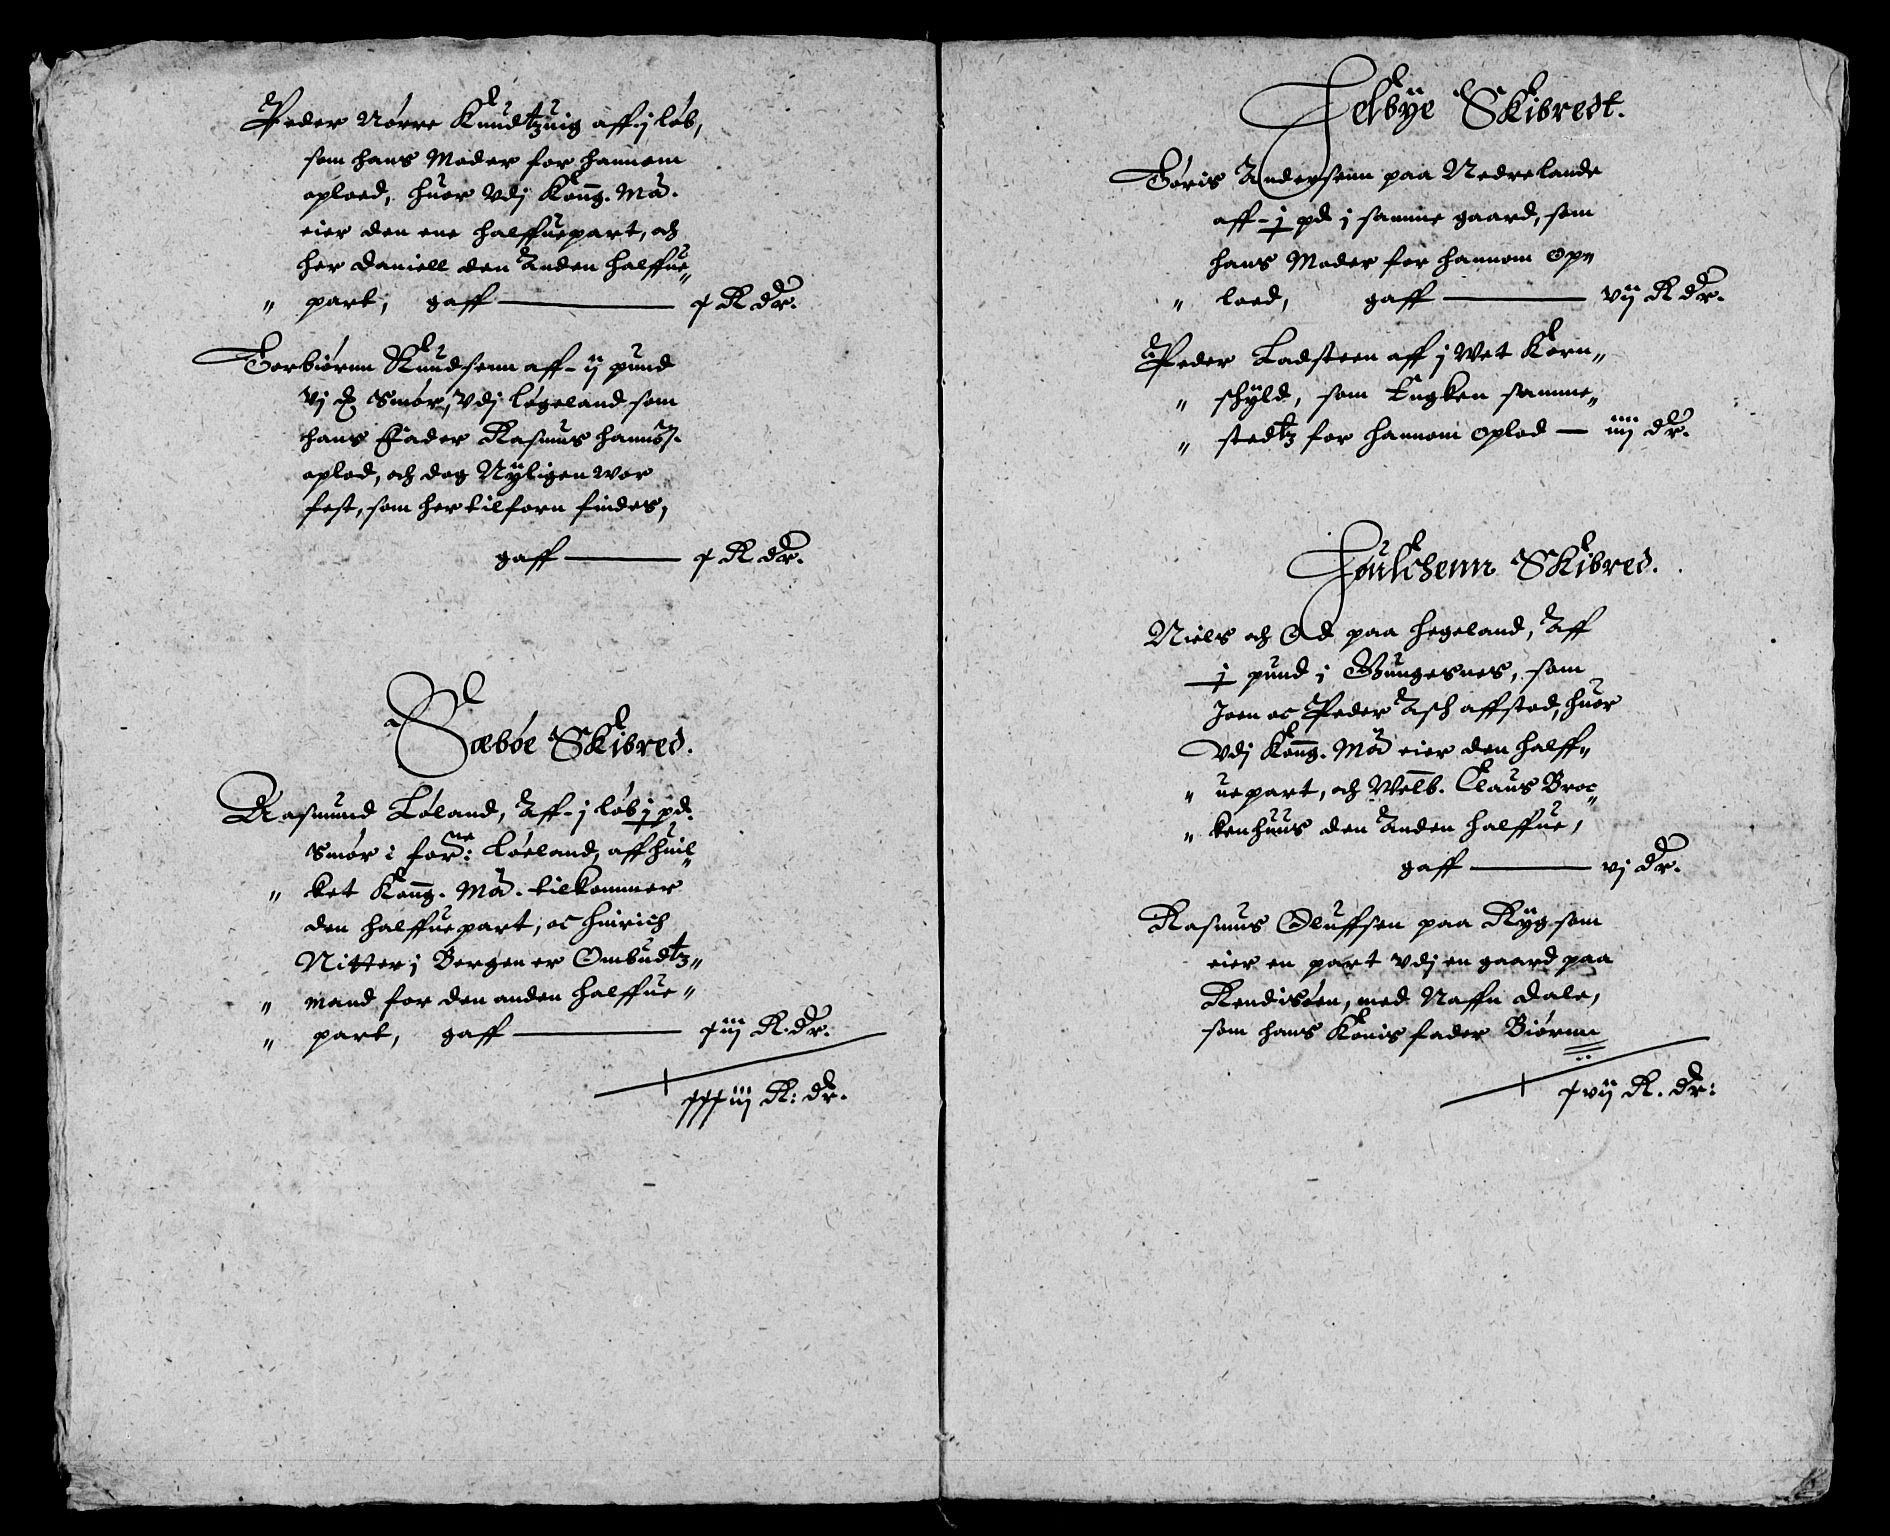 Peder Nørre Knudtzuig aff j løb,
som hans Moder for hannom
oploed, huor Vdj Kong. Ma.
eier den ene halffuepart, och
her Daniell den Anden halffue„
„ part, gaff — x R dr.
Torbiørnn Knudsenn aff - ij pund
vj ℔ Smør, Vdj Løgeland som
hans Fader Rasmus hannom
oplod, och dog Nÿligen wor
fest, som her tilforn findes,
gaff — x R dr.
Sæbøe Skibred.
Rasmund Løland, Aff - j løb j pd.
Smør i forne: Løeland, aff huil„
„ ket Kong. Ma. tilkommer
den halffuepart, oc Hinrich
Nitter j Bergen er Ombudtz„
„ mand for den anden halffue„
„ part, gaff — xiij R. dr.
xxxiiij R: dr.
Jelbÿe Skibredt.
Tøris Andersenn paa Nedreland
aff - j pd j samme gaard, som
hans Moder for hannom op„
„ loed, gaff — vij R dr.
Peder Ladsteen aff j Wet Korn„
„ schÿld, som Encken samme„
„ stedtz for hannom oplod — iiij dr.
Foulchenn Skibred.
Niels och Od paa Hegeland, Aff
j pund i Bungesnes, som
Joen oc Peder Asch affstod, huor
vdj Kong. Ma eier den halff„
„ uepart, och Welb. Claus Broc„
„ kenhuus den Anden halffue,
gaff — vj dr.
Rasmus Oluffsen paa Rÿg som
eier en part vdj en gaard paa
Rendisøen, med Naffn Dale,
som hans Konis fader Biørnn
xvij R. dr: